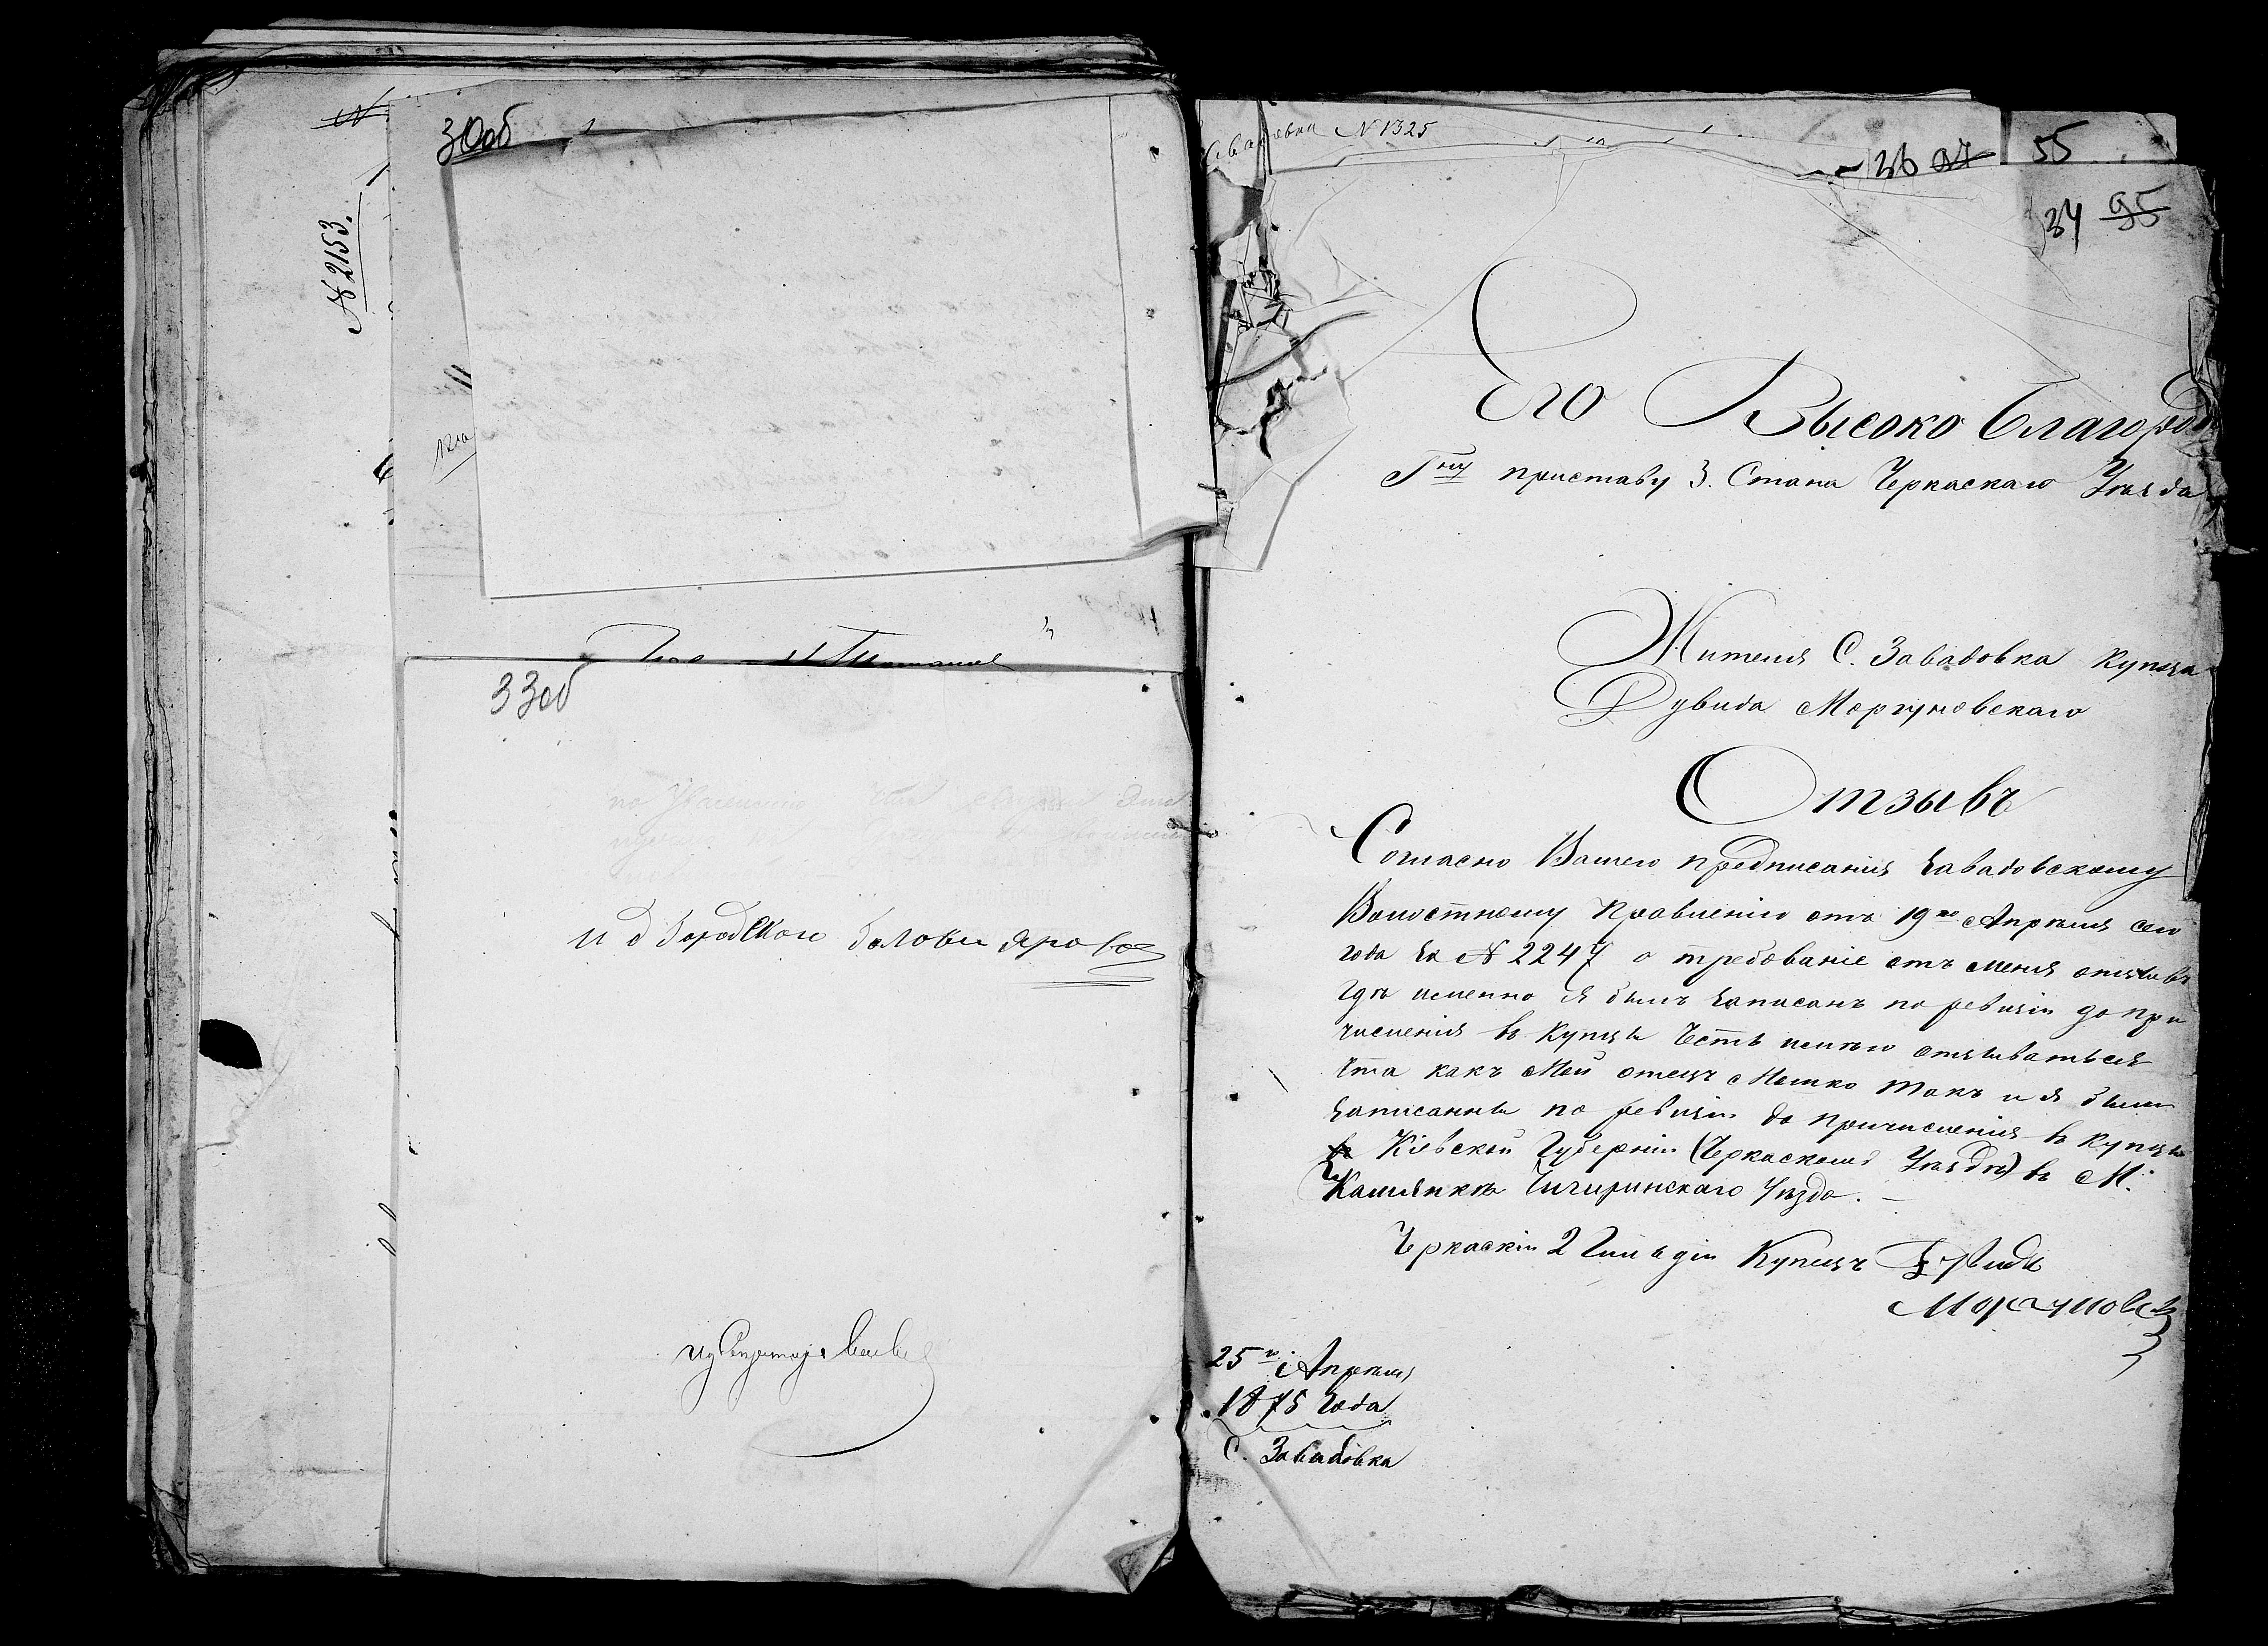 30об
№ 2153.
33об
и д Городского Головы
№ 1325
36 97
55
34 95
Его Высоко Благород
Гну приставу 3. Стана Черкаскаго Уѣзда
Жителя С. Завадовка Купца
Дувида Моргуновскаго
Отзывъ
Согласно Вашего предписания Завадовскому
Волостному Правлению отъ 19го Апрѣля сего
года за № 2247 о требованіе отъ меня отзывъ
гдѣ именно я былъ записанъ по ревизіи до при
численія въ Купцы Честь имѣю отзываться
Что какъ мой отецъ Мошко такъ и я были
записанны по ревизіи до причисленія въ купцы
въ Кіевской Губерніи (Черкаскомъ Уѣздѣ) въ М.
Камянкѣ Чигиринскаго Уѣзда. —
Черкаскій 2 Гильдіи Купецъ Дувидъ
25го Апрѣля
1875 Года
С. Завадовка